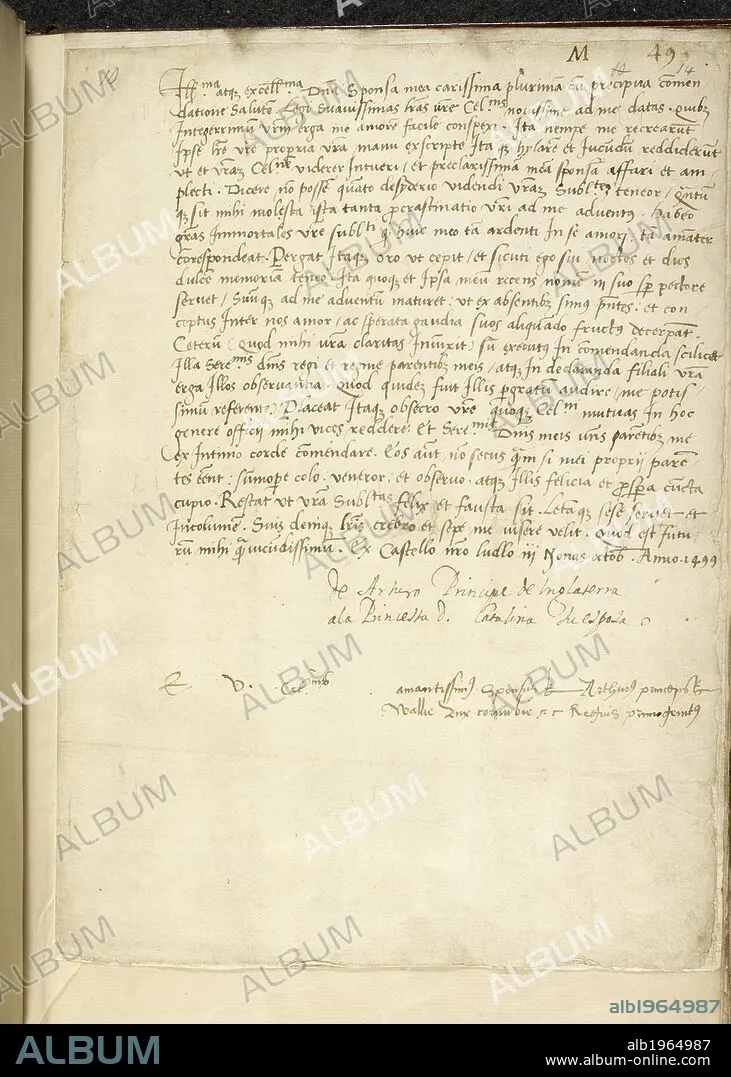 M 49
14
Ill.ma atq excell.ma Dna Sponsa mea carissima plurimā cū precipua comen
datione Salutē. Legi Suavissimas has vre Celnis novissime ad me datas. Quibz
Integerrimū vrm erga me amorē facile conspexi. Ita nempe me recrearūt
Ipse lre vre propria vra manu exscripte Ita q hylarē et Iucundū reddiderūt
ut et vraz Celnē viderer Intueri / et preclarissimā meā sponsaz affari et am
plecti. Dicere nō possem quāto desyderio videndi vraz Subltez teneor / Quātū
qz sit mihi molesta ista tanta pcrastinatio vrī ad me adventq. Habeo
gras Immortales vre sublti q huic meo tā ardenti In se amori / tā amāter
correspondeat. Pergat Itaqz oro ut cepit / et sicuti ego sui noctes et dies
dulcē memoriam teneo. Ita quoqz et Ipsa meū recens nomē in suo sp pectore
servet / Suūqz ad me adventum maturet: ut ex absentibz simq pntes: et con
ceptus Inter nos amor / ac sperata gaudia suos aliquādo fructq decerpāt.
Ceterū (Quod mihi vra claritas Iniūxit) sū executq In comendanda scilicet
Illa Serenis dnis regi et regine parentibz meis / atqz In declaranda filiali vra
erga Illos observātia. Quod quidez fuit Illis pgratū audire / me potis
simū referente. Placeat Itaqz obsecro vre quoqz Celni mutuas In hoc
genere officii mihi vices reddere: Et Serenis Dnis meis vris parētibz me
ex Intimo corde comendare. Eos aūt nō secus qm si mei proprii paren
tes eent: sūmope colo. veneror. et observo. atqz Illis felicia et prospa cuncta
cupio. Restat ut vra Subltas felix et fausta sit. Letamqz sese servet et
Incolumē. Suis deniqz lris crebro et sepe me visere velit. Quod est futu
rū mihi qm iucundissimū. Ex Castello nro ludlo iij Nonas octob. Anno. 1499
De Arturo Principe de Inglaterra
ala Princesa D. Catalina Su esposa
E. V. Celnis amantissimq Sponsus Arthurq princeps
Wallie Dux cornubie &c Regius primogenitq
ALBUM
alb1964987
ALBUM
alb1964987
www.album-online.com